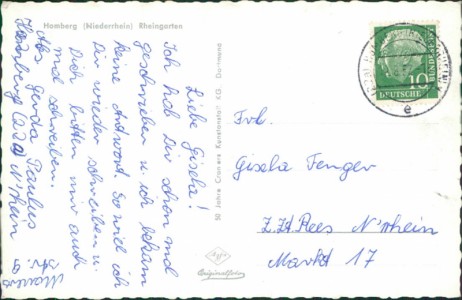 Homberg (Niederrhein) Rheingarten
Liebe Gisela!
Ich hab Dir schon mal
geschrieben u. ich bekam
keine Antwort. So will ich
Dir wieder schreiben u.
Dich bitten mir auch
mal schreiben.
Abs. Gerda Paulus
Homberg (22a) N'rhein
50 Jahre Cramers Kunstanstalt KG. Dortmund
Agfa
Originalfoto
10
DEUTSCHE
BUNDESPOST
e
Frl.
Gisela Fenger
Z.Zt. Rees N'rhein
Markt 17